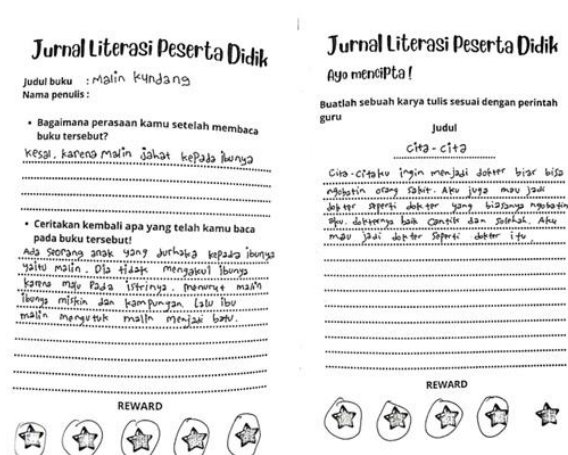 Jurnal Literasi Peserta Didik
Judul buku : Malin Kundang
Nama penulis :
• Bagaimana perasaan kamu setelah membaca
buku tersebut?
Kesal, karena malin jahat kepada ibunya
• Ceritakan kembali apa yang telah kamu baca
pada buku tersebut!
Ada seorang anak yang durhaka kepada ibunya
yaitu malin. Dia tidak mengakui ibunya
karena malu pada istrinya. menurut malin
ibunya miskin dan kampungan. Lalu ibu
malin mengutuk malin menjadi batu.
REWARD
Jurnal Literasi Peserta Didik
Ayo menciPta!
Buatlah sebuah karya tulis sesuai dengan perintah
guru
Judul
cita-cita
Cita-citaku ingin menjadi dokter biar bisa
ngobatin orang sakit. Aku juga mau jadi
dokter seperti dokter yang biasanya ngobatin
aku. dokternya baik cantik dan solehah. Aku
mau jadi dokter seperti dokter itu.
REWARD